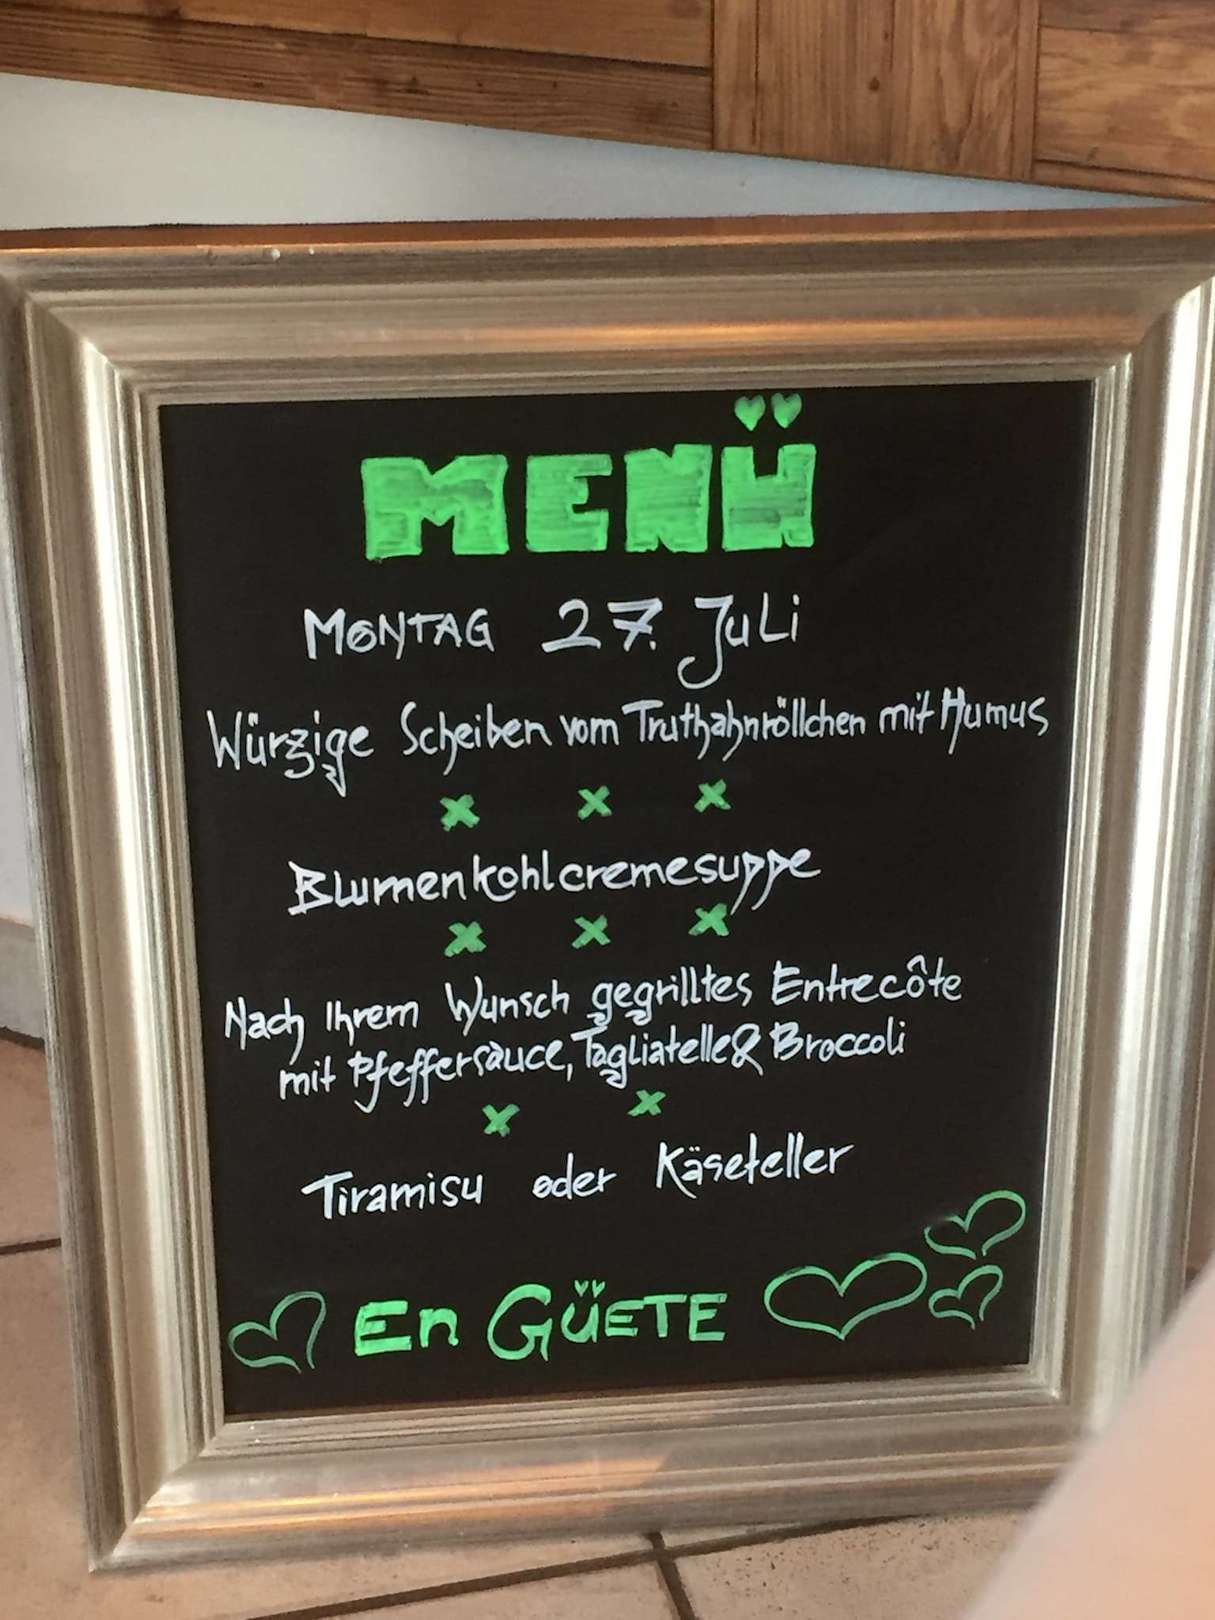 MENÜ
MONTAG 27. JuLi
Würzige Scheiben vom Truthahnröllchen mit Humus
x x x
Blumenkohlcremesuppe
x x x
Nach Ihrem Wunsch gegrilltes Entrecôte
mit Pfeffersauce, Tagliatelle & Broccoli
x x
Tiramisu oder Käseteller
En GÜETE